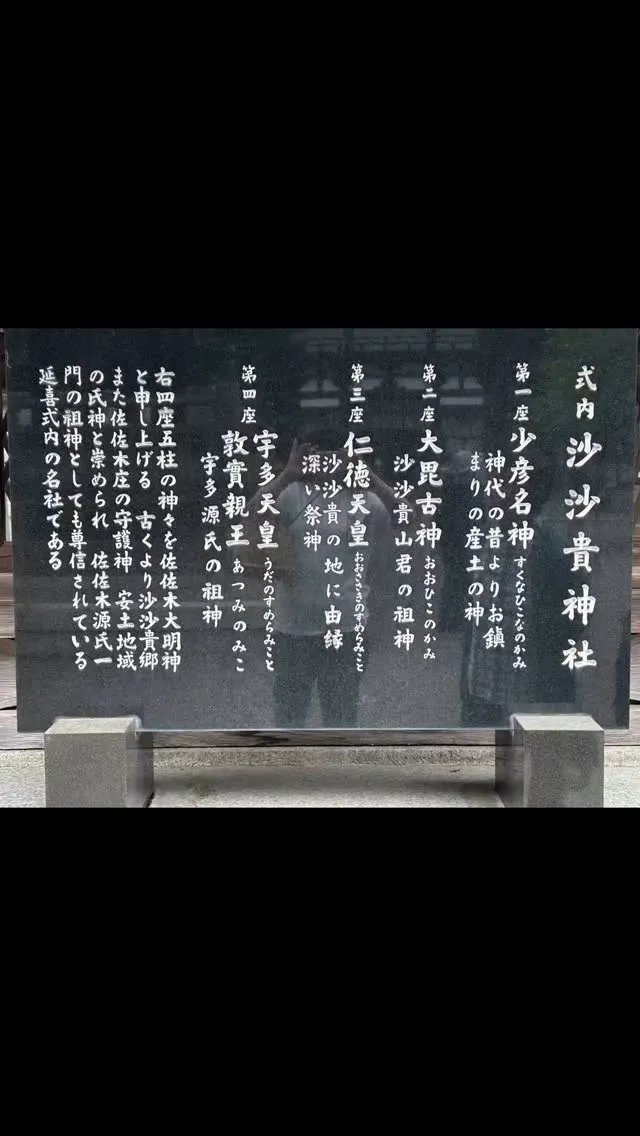 式内 沙沙貴神社
第一座 少彦名神 すくなひこなのかみ
神代の昔よりお鎮
まりの産土の神
第二座 大毘古神 おおひこのかみ
沙沙貴山君の祖神
第三座 仁徳天皇 おおささきのすめらみこと
沙沙貴の地に由縁
深い祭神
第四座 宇多天皇 うだのすめらみこと
敦實親王 あつみのみこ
宇多源氏の祖神
右四座五柱の神々を佐佐木大明神
と申し上げる 古くより沙沙貴郷
また佐佐木庄の守護神 安土地域
の氏神と崇められ 佐佐木源氏一
門の祖神としても尊信されている
延喜式内の名社である